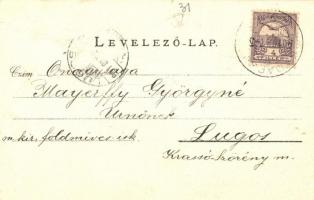 31
LEVELEZŐ-LAP.
Czím Őnagysága
Mayerffy Györgyné
Úrnőnek
m. kir. földmives isk. Lugos
Krassó-Szörény m.